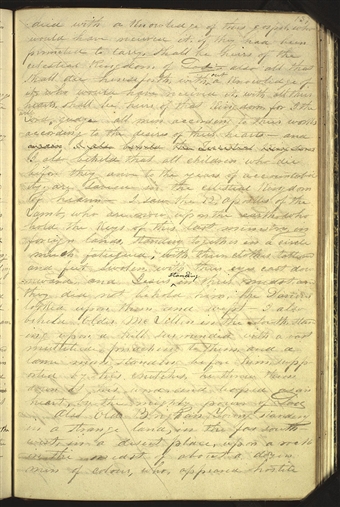 and with a knowledge of this gospel who
would have received it, if they had been
permitted to tarry, shall be heirs of the
celestial kingdom of God— also all that
shall die henceforth, with out a knowledge of
it, who would have received it, with all their
hearts, shall be heirs of that kingdom for I the
Lord, judge all men according to their works
according to the desires of their hearts— and
I also beheld the Terestial kingdom
I also beheld that all children who die
before they arive to the years of accountabil
ity, are saved in the celestial kingdom
of heaven— I saw the 12 apostles of the
Lamb, who are now upon the earth who
hold the keys of this last ministry, in
foreign lands, standing together in a circle
much fatiegued, with their clothes tattered
and feet swolen, with their eyes cast down
ward, and Jesus standing in their midst, and
they did not behold him, the Saviour
looked upon them and wept— I also
beheld Elder McLellen in the south, stand
ing upon a hill surrounded with a vast
multitude, preaching to them, and a
lame man standing before him, supp
orted by his crutches, he threw them
down at his word, and leaped as an
heart, by the mighty power of God
Also Elder Brigham Young standing
in a strange land, in the far southwest,
in a desert place, upon a rock
in the midst of about a dozen
men of colour, who, appeared hostile